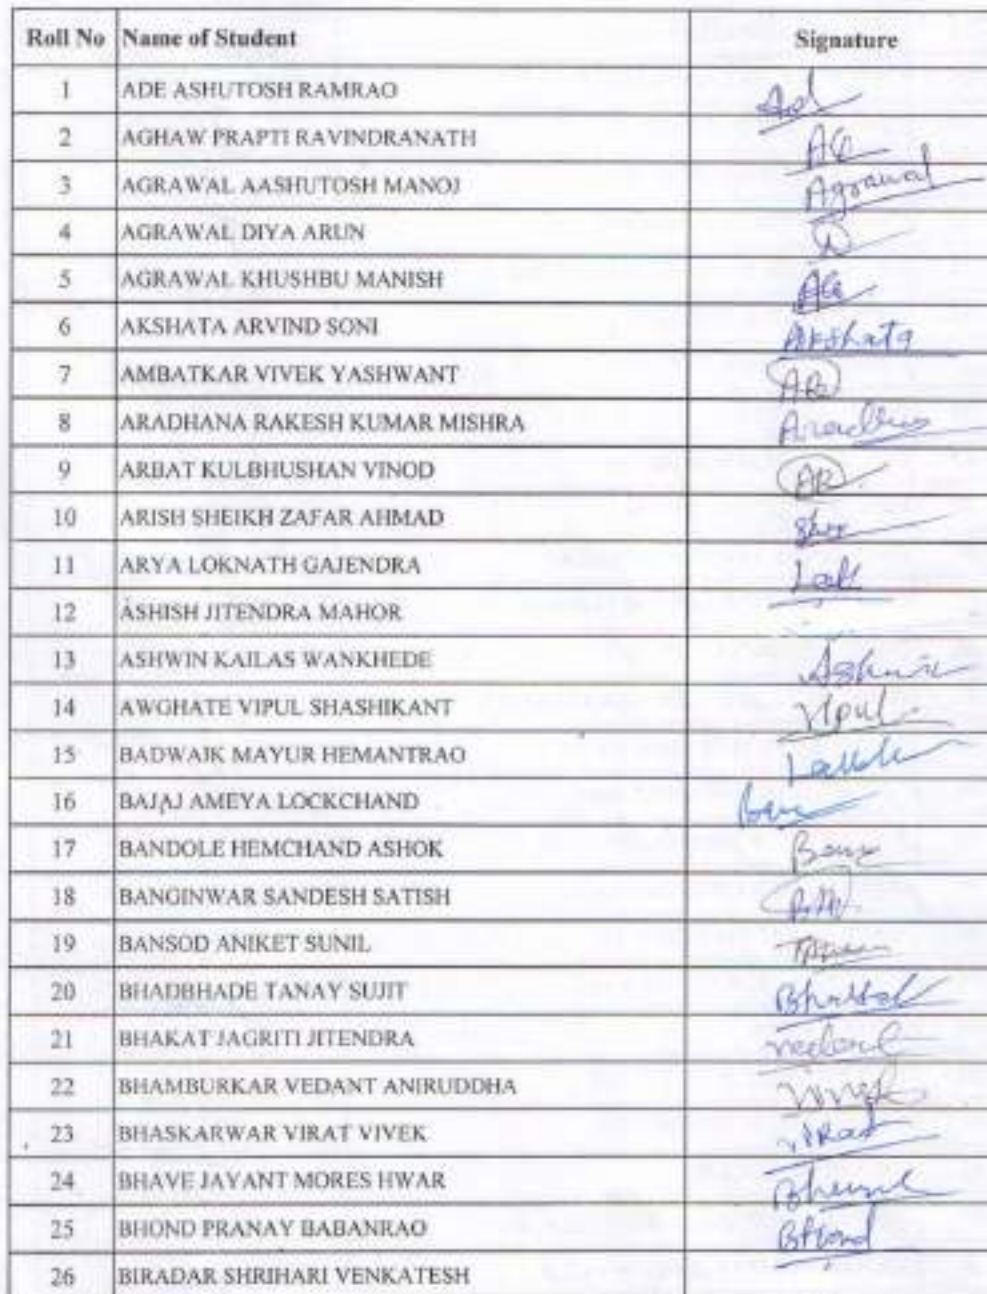 Roll No Name of Student Signature
1 ADE ASHUTOSH RAMRAO Ad
2 AGHAW PRAPTI RAVINDRANATH
3 AGRAWAL AASHUTOSH MANOJ Agrawal
4 AGRAWAL DIYA ARUN
5 AGRAWAL KHUSHBU MANISH
6 AKSHATA ARVIND SONI Akshata
7 AMBATKAR VIVEK YASHWANT
8 ARADHANA RAKESH KUMAR MISHRA
9 ARBAT KULBHUSHAN VINOD AR
10 ARISH SHEIKH ZAFAR AHMAD
11 ARYA LOKNATH GAJENDRA
12 ASHISH JITENDRA MAHOR
13 ASHWIN KAILAS WANKHEDE Ashwin
14 AWGHATE VIPUL SHASHIKANT Vipul
15 BADWAIK MAYUR HEMANTRAO
16 BAJAJ AMEYA LOCKCHAND
17 BANDOLE HEMCHAND ASHOK
18 BANGINWAR SANDESH SATISH
19 BANSOD ANIKET SUNIL
20 BHADBHADE TANAY SUJIT
21 BHAKAT JAGRITI JITENDRA
22 BHAMBURKAR VEDANT ANIRUDDHA
23 BHASKARWAR VIRAT VIVEK
24 BHAVE JAYANT MORES HWAR
25 BHOND PRANAY BABANRAO Bhond
26 BIRADAR SHRIHARI VENKATESH